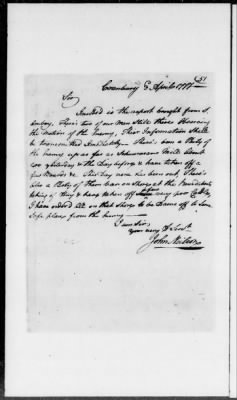 (51
Cranbury 5 April 1777
Sir
Inclosed is the report brought from S.
Amboy, There's two of our Men Still there Observing
the Motion of the Enemy, Their Information Shall
be transmitted Immediately. There's been a Party of
the Enemy up as far as
yesterday & the Day before & have taken off a
few This Day none has been out, There's
also a Party of them been on Shore at the
& have taken off very poor Cattle,
I have orderd all on that Shore to be Drove off to Some
Safe place from the Enemy
I am Sir
your very H Servt.
John Neilson